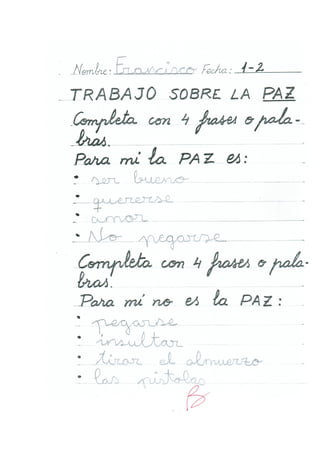 Nombre: Francisco Fecha: 1-2
TRABAJO SOBRE LA PAZ
Completa con 4 frases o pala-
bras.
Para mi la PAZ es:
• ser bueno
• quererse
• amor
• No pegarse
Completa con 4 frases o pala-
bras.
Para mí no es la PAZ:
• pegarse
• insultar
• tirar el almuerzo
• las pistolas
B